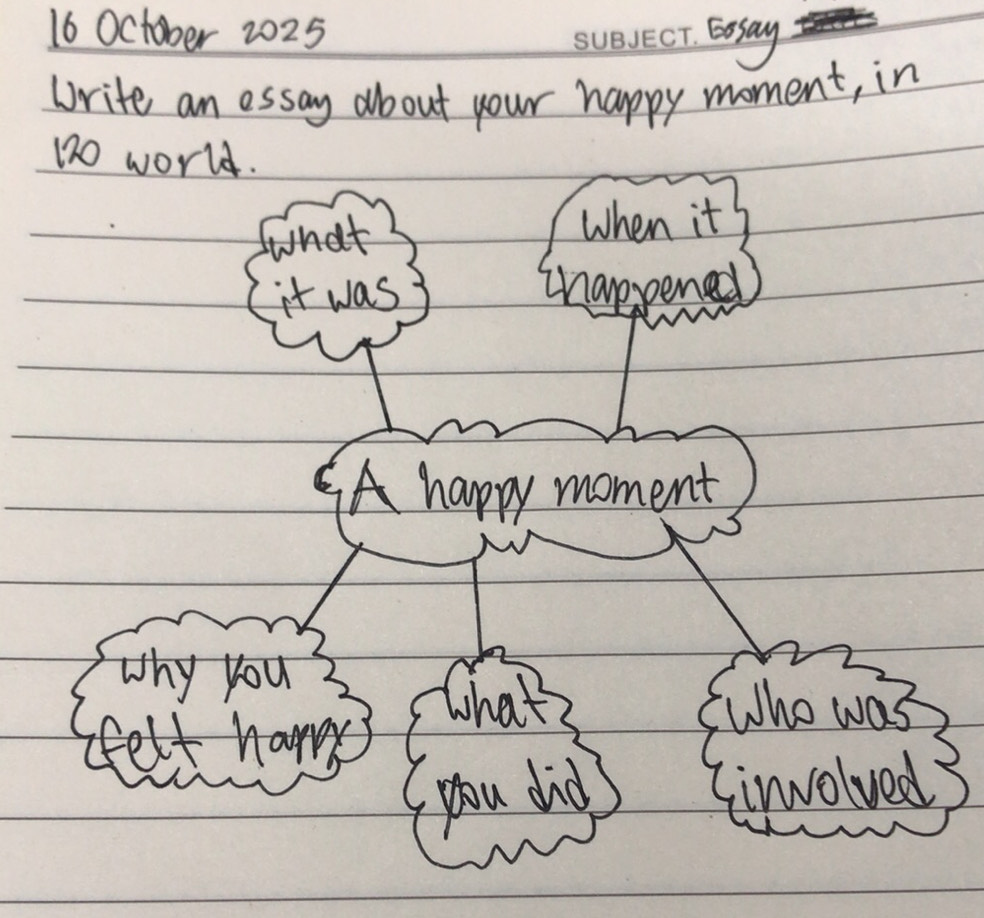 16 October 2025
SUBJECT. Essay
Write an essay about your happy moment, in
120 world.
what
it was
When it
happened
A happy moment
why you
felt happy
what
you did
who was
involved